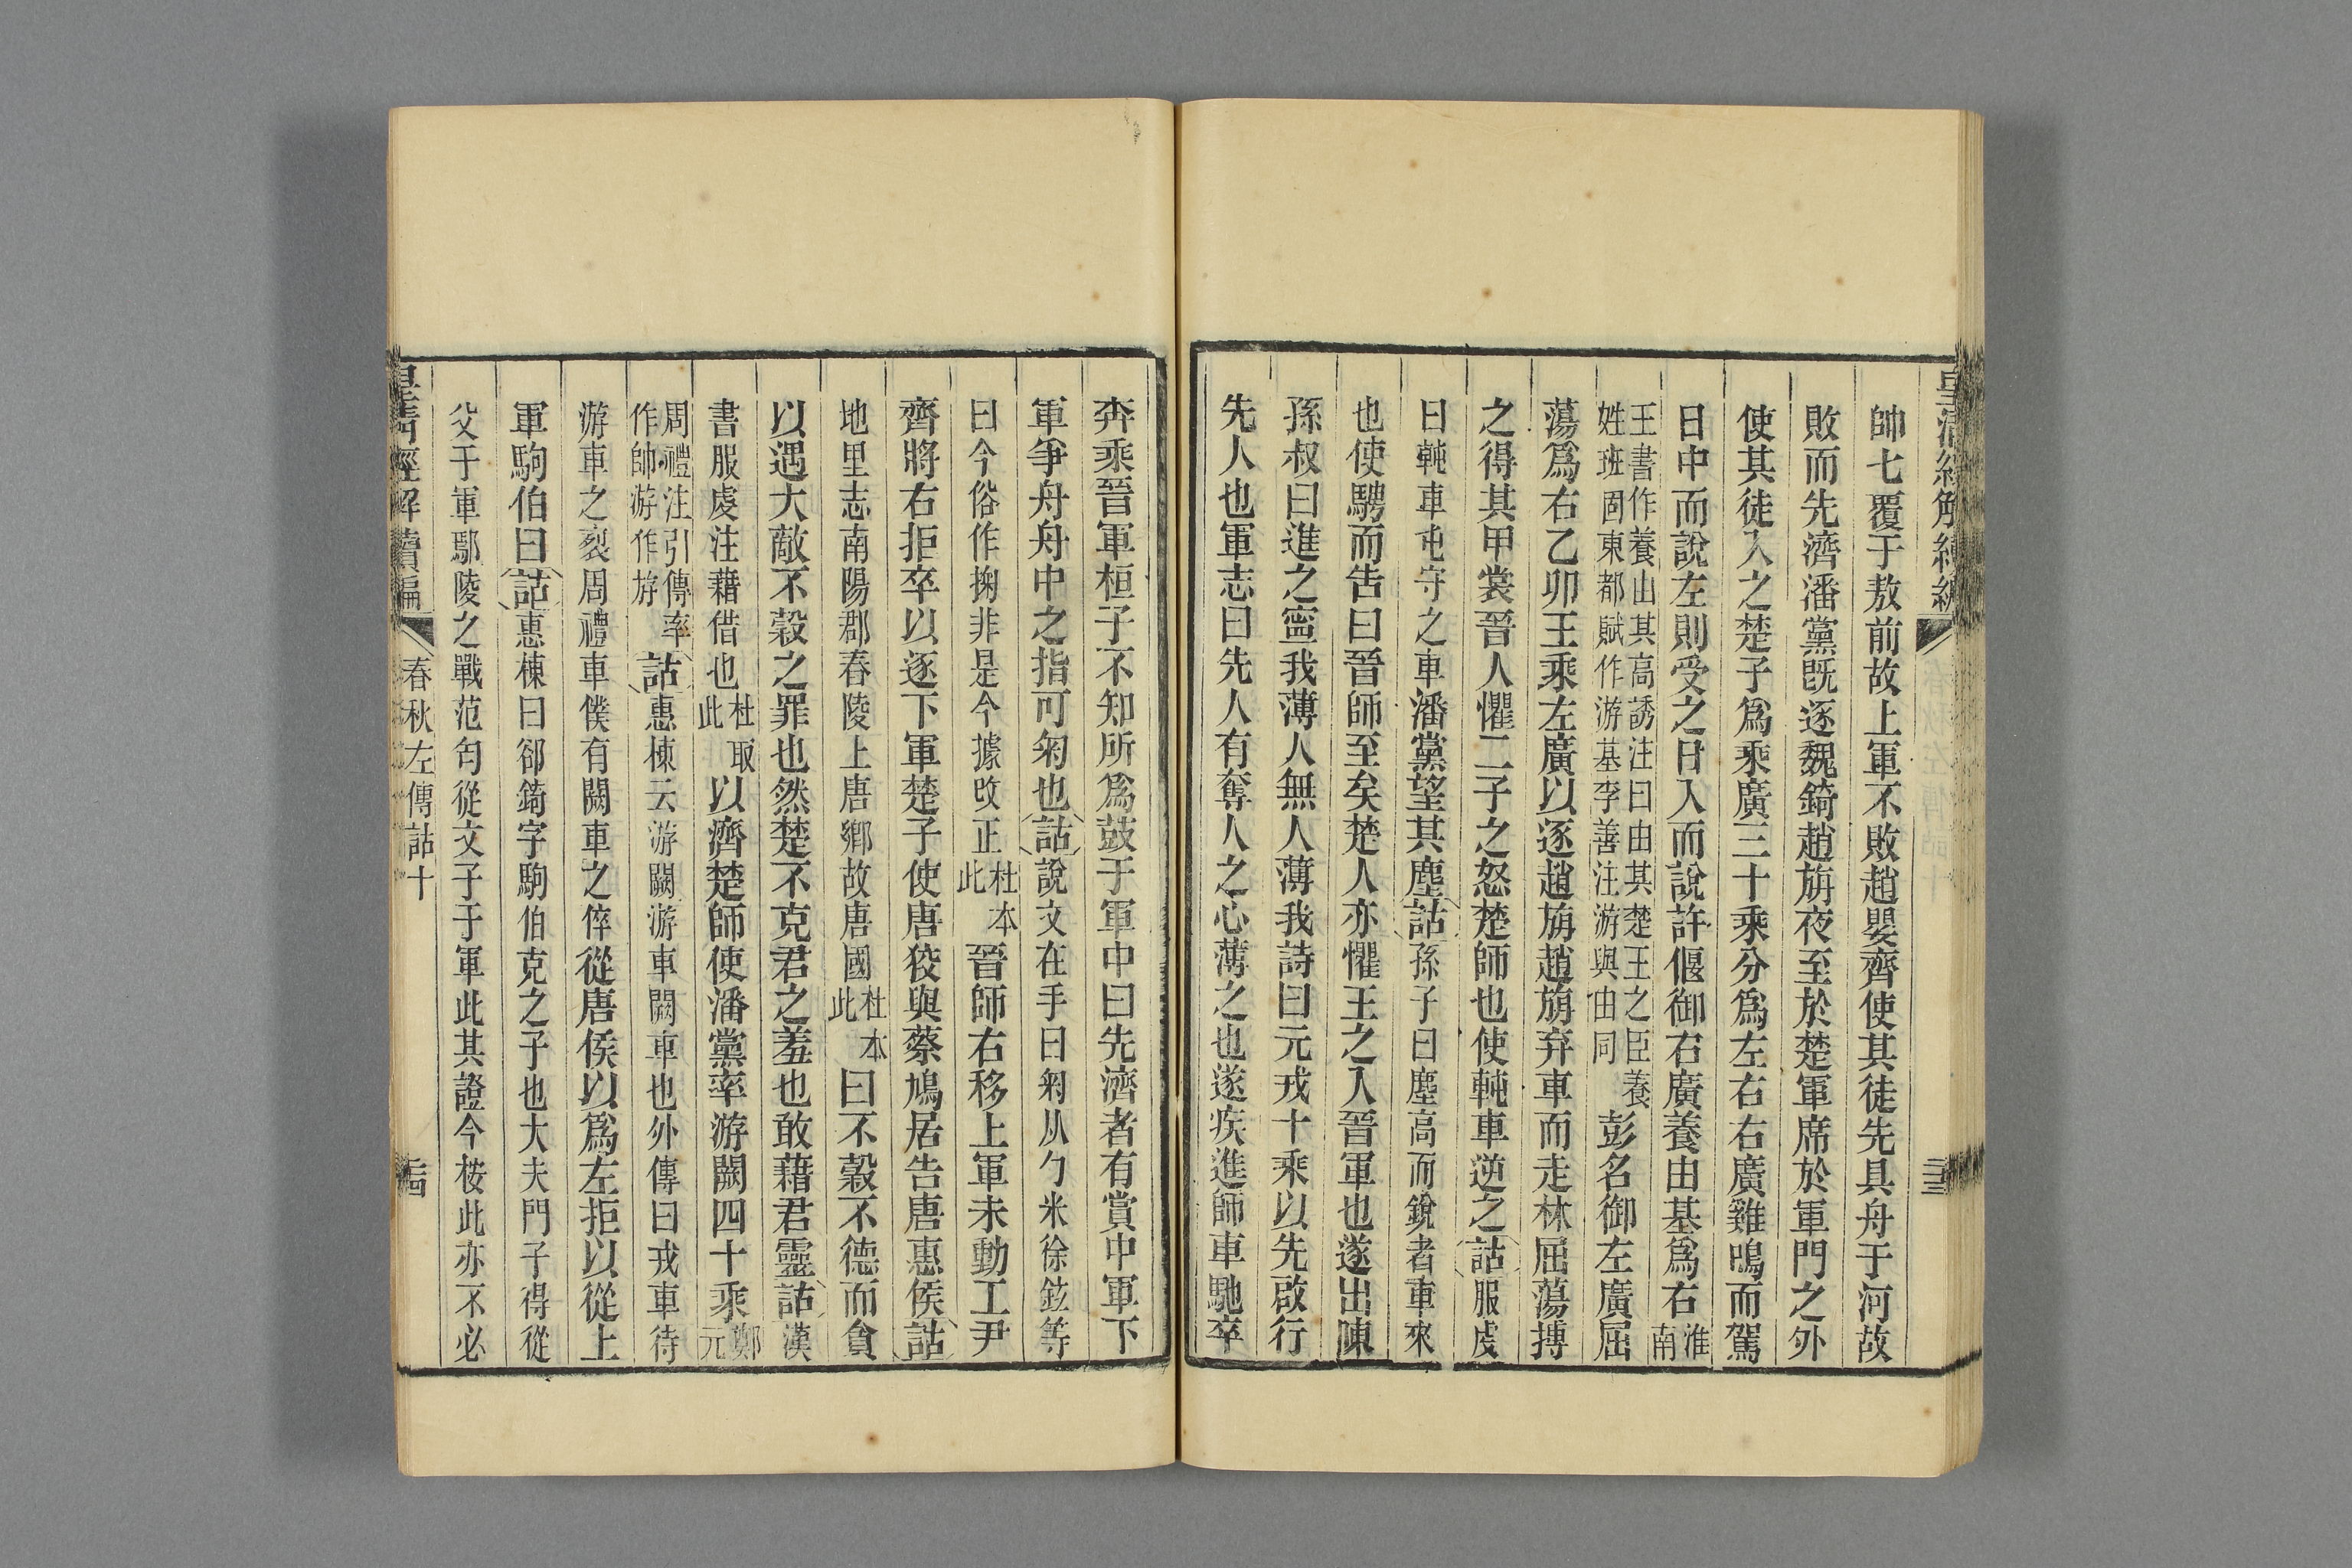 帥七覆于敖前故上軍不敗趙嬰齊使其徒先具舟于河故
敗而先濟潘黨旣逐魏錡趙旃夜至於楚軍席於軍門之外
使其徒入之楚子爲乘廣三十乘分爲左右右廣雞鳴而駕
日中而說左則受之日入而說許偃御右廣養由基爲右淮南
王書作養由其高誘注曰由其楚王之臣養
姓班固東都賦作游基李善注游與由同
彭名御左廣屈
蕩爲右乙卯王乘左廣以逐趙旃趙旃弃車而走林屈蕩搏
之得其甲裳晉人懼二子之怒楚師也使軘車逆之詁服虔
曰軘車屯守之車潘黨望其塵詁孫子曰塵高而銳者車來
也使騁而告曰晉師至矣楚人亦懼王之入晉軍也遂出陳
孫叔曰進之寧我薄人無人薄我詩曰元戎十乘以先啟行
先人也軍志曰先人有奪人之心薄之也遂疾進師車馳卒
奔乘晉軍桓子不知所爲鼓于軍中曰先濟者有賞中軍下
軍爭舟舟中之指可匊也詁說文在手曰匊从勹米徐鉉等
曰今俗作掬非是今據改正杜本此晉師右移上軍未動工尹
齊將右拒卒以逐下軍楚子使唐狡與蔡鳩居告唐惠侯詁
地里志南陽郡舂陵上唐鄉故唐國杜本此曰不穀不德而貪
以遇大敵不穀之罪也然楚不克君之羞也敢藉君靈詁漢
書服虔注藉借也杜取此以濟楚師使潘黨率游闕四十乘鄭元
周禮注引傳率
作帥游作斿
詁惠棟云游闕游車闕車也外傳曰戎車待
游車之裂周禮車僕有闕車之倅從唐侯以爲左拒以從上
軍駒伯曰詁惠棟曰郤錡字駒伯克之子也大夫門子得從
父于軍鄢陵之戰范匄從文子于軍此其證今桉此亦不必
皇清經解續編
春秋左傳詁十